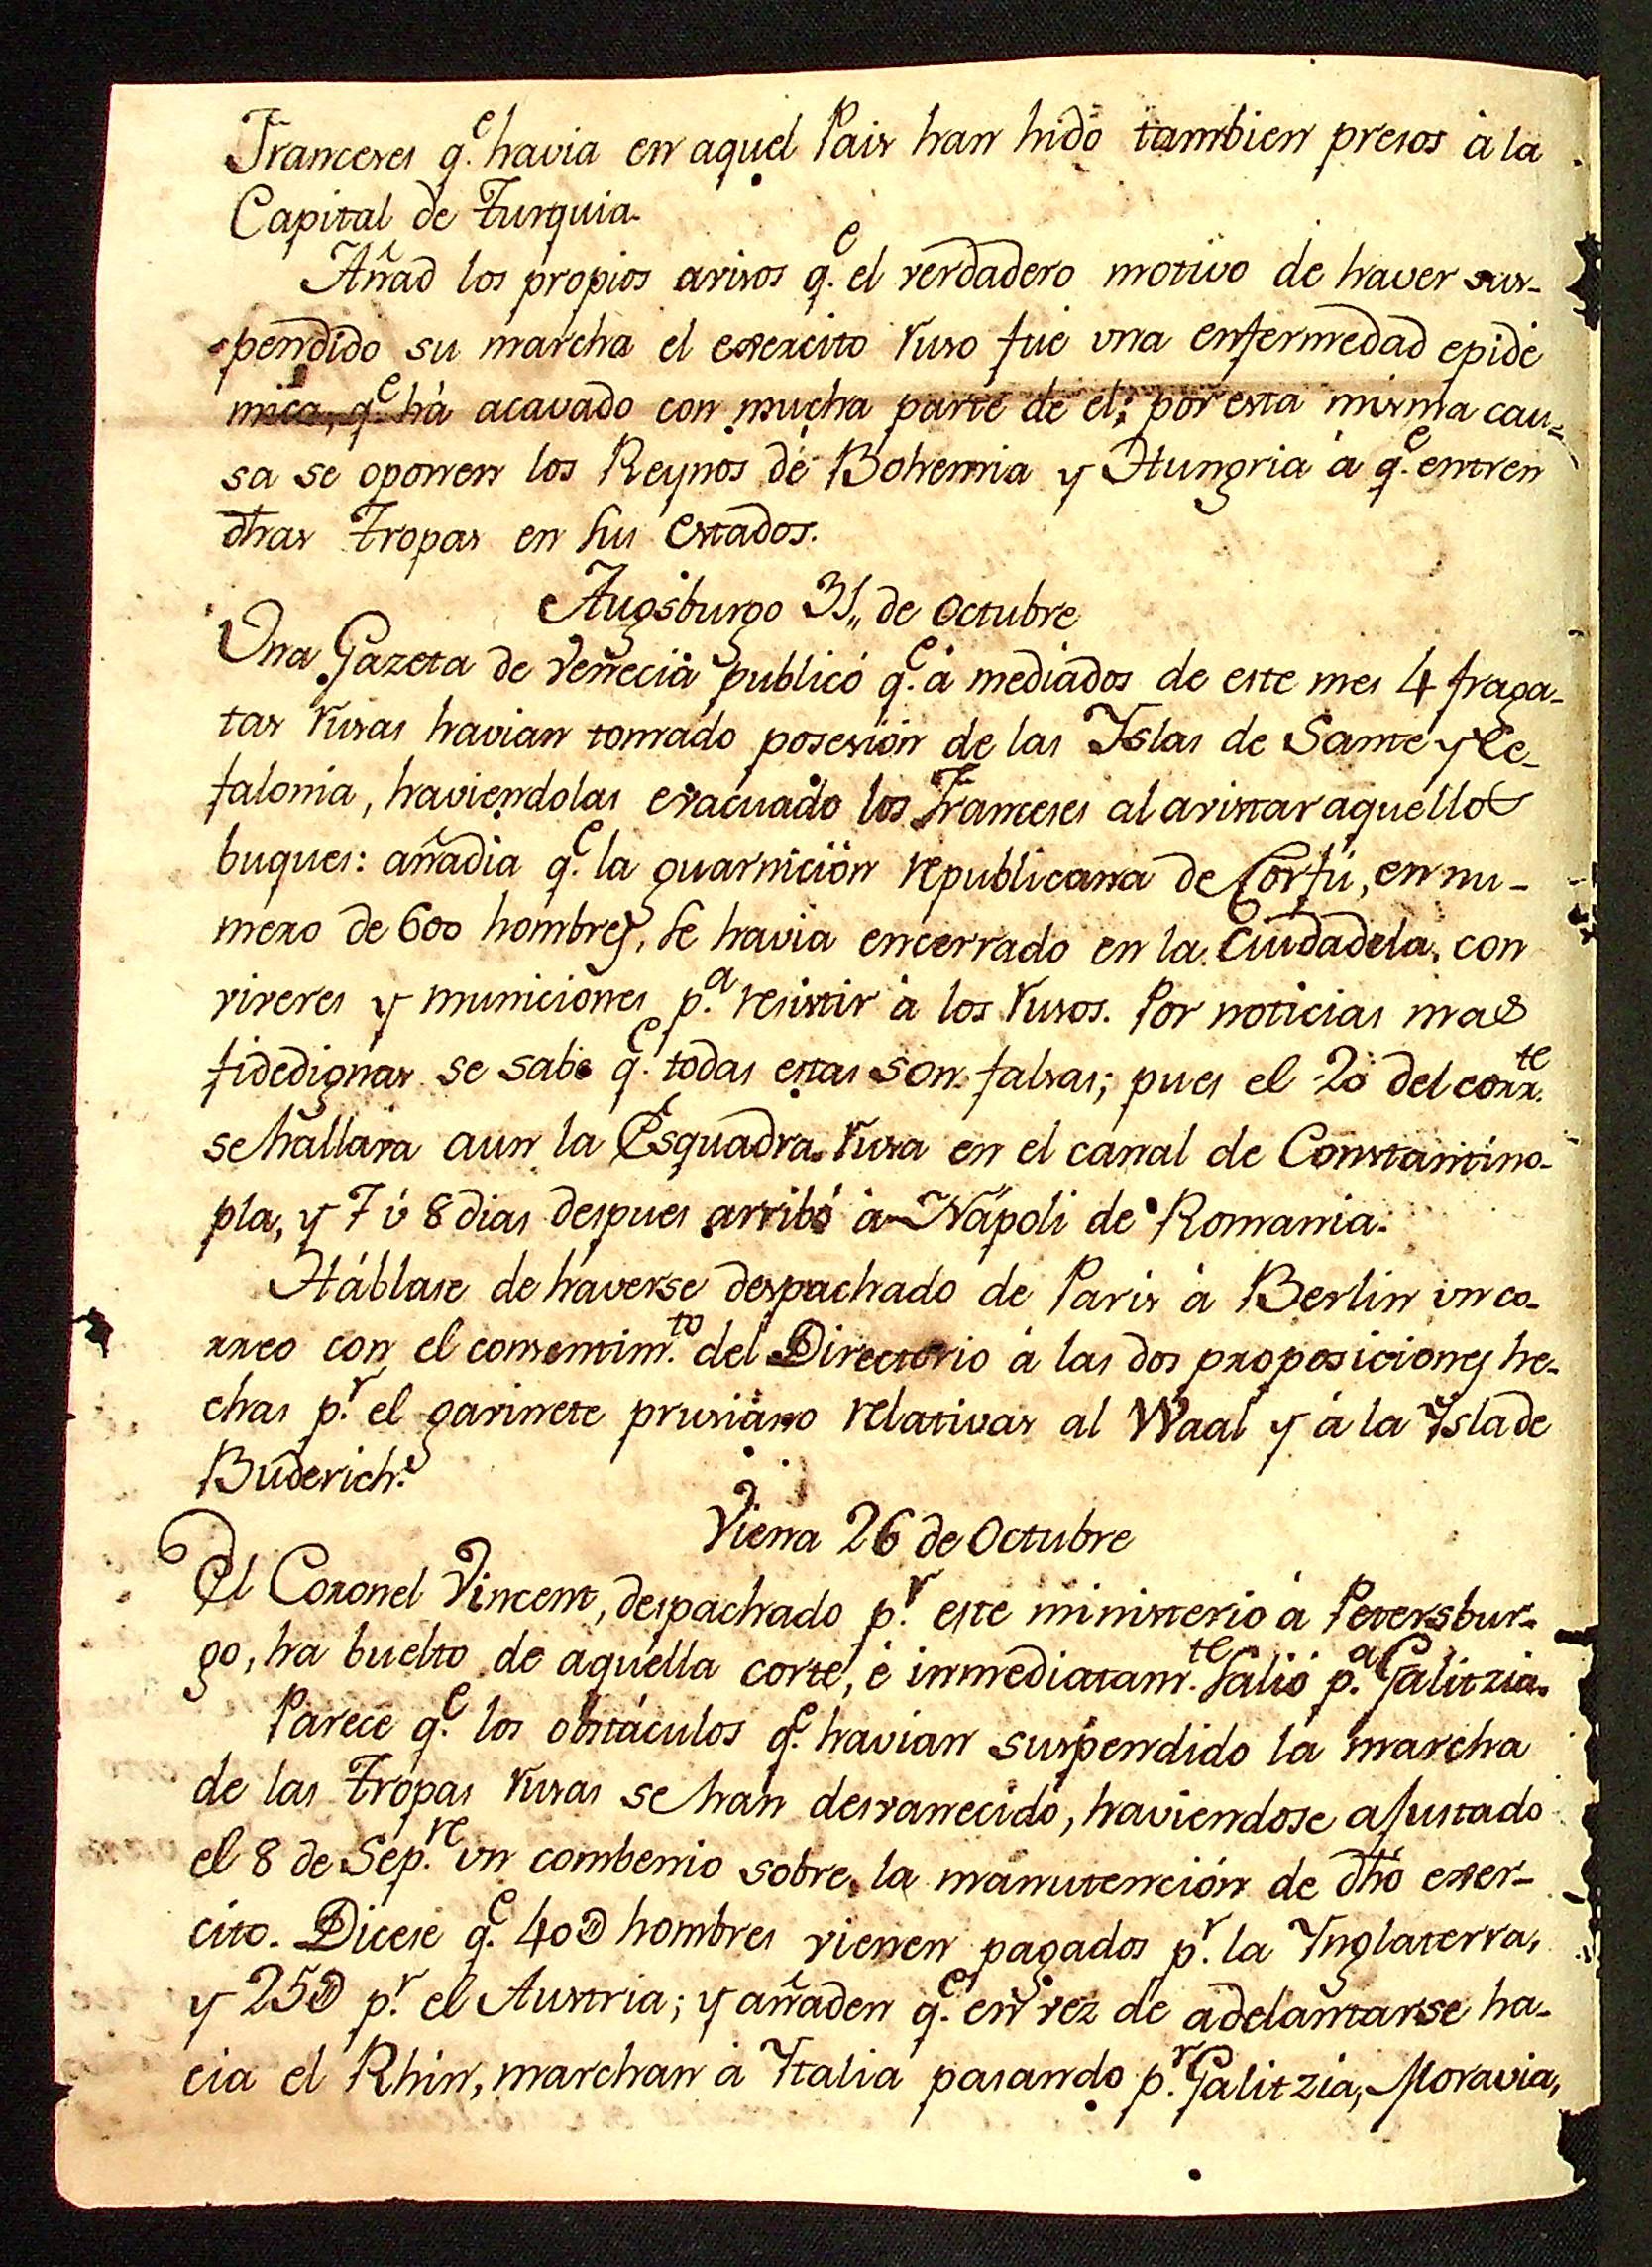 Franceses q.e havia en aquel Pais han hido tambien presos à la
Capital de Turquia.
Añad los propios avisos q.e el verdadero motivo de haver sus-
pendido su marcha el exercito ruso fué vna enfermedad epide
mica, q.e hà acavado con mucha parte de èl; por esta misma cau-
sa se oponen los Reynos de Bohemia y Hungria à q.e entren
otras Tropas en sus Estados.
Augsburgo 31,, de Octubre
Una Gazeta de Venecia publicó q.e à mediados de este mes 4 fraga-
tas rusas havian tomado posesión de las Yslas de Sante y Ce-
falonia, haviendolas evacuado los Franceses al avistar aquellos
buques: añadia q.e la guarnición republicana de Corfú, en nu-
mero de 600 hombres, se havia encerrado en la Ciudadela, con
viveres y municiones p.a resistir à los rusos. Por noticias mas
fidedignas se sabe q.e todas estas son falsas; pues el 20 del corr.te
se hallava aun la Esquadra rusa en el canal de Constantino-
pla, y 7 ú 8 dias despues arribó à Nápoli de Romania.
Háblase de haverse despachado de Paris à Berlin vn co-
rreo con el consentim.to del Directorio à las dos proposiciones he-
chas p.r el gavinete prusiano relativas al Waal y à la Ysla de
Buderich.
Viena 26 de Octubre
El Coronel Vincent, despachado p.r este ministerio à Petersbur-
go, ha buelto de aquella corte, è inmediatam.te salió p.a Galitzia.
Parece q.e los obstáculos q.e havian suspendido la marcha
de las Tropas rusas se han desvanecido, haviendose ajustado
el 8 de Sep.re vn combenio sobre la manutención de dho exer-
cito. Dicese q.e 40@ hombres vienen pagados p.r la Ynglaterra,
y 25@ p.r el Austria; y añaden q.e en vez de adelantarse ha-
cia el Rhin, marchan à Ytalia pasando p.r Galitzia, Moravia,